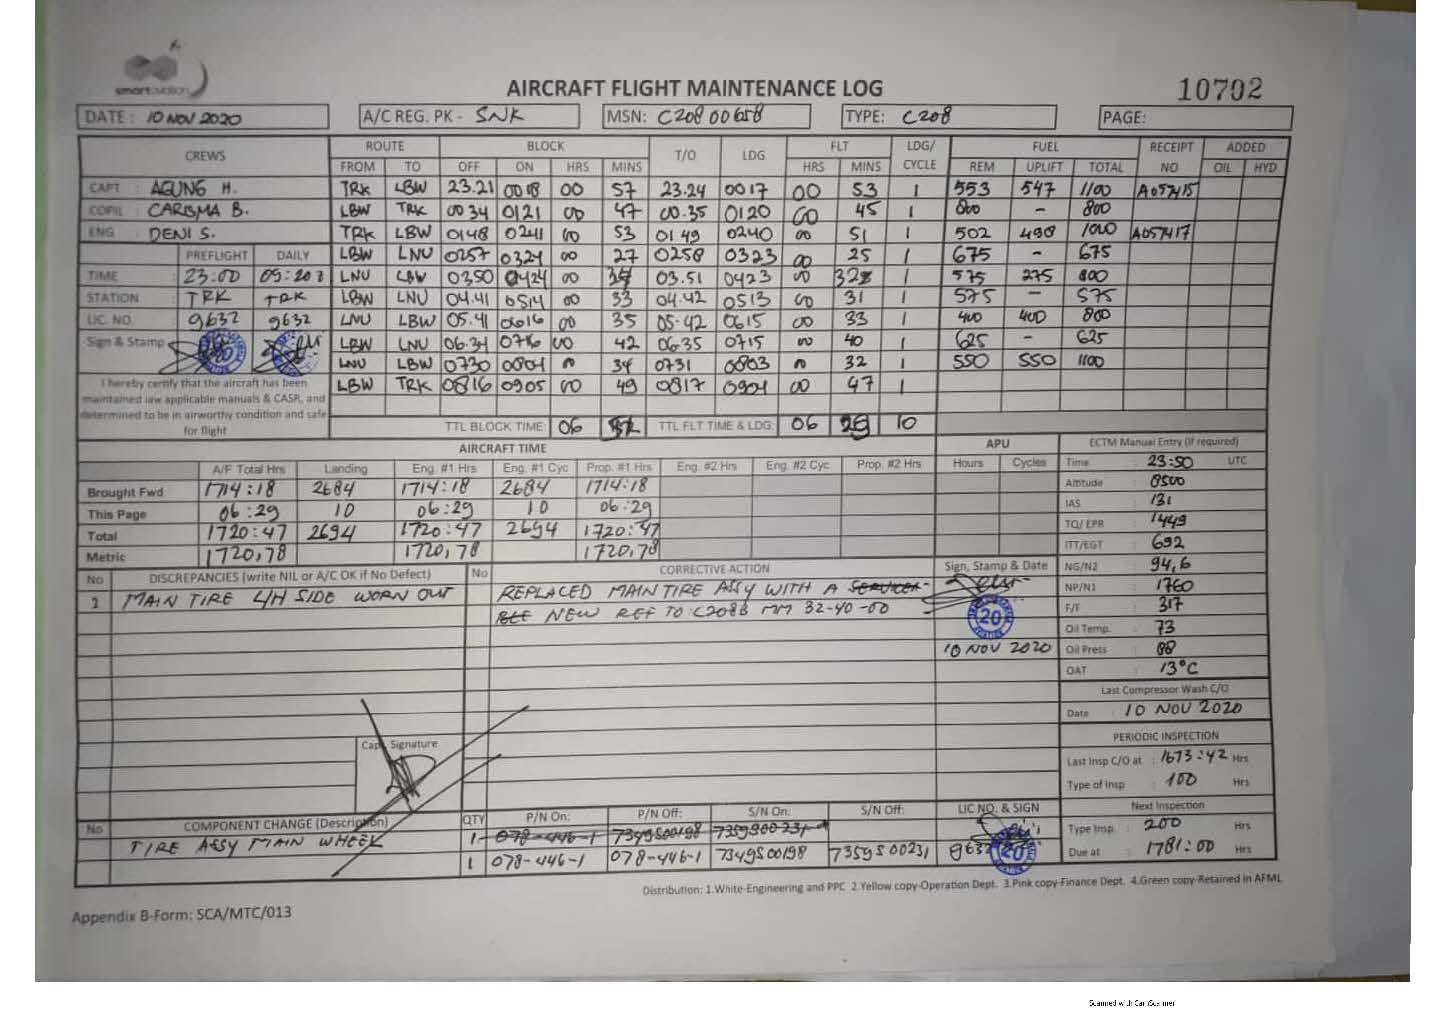 smartaviation
AIRCRAFT FLIGHT MAINTENANCE LOG
10702
DATE : 10 NOV 2020 A/C REG. PK - SNK MSN: C208 00658 TYPE: C208 PAGE:
CREWS ROUTE BLOCK T/O LDG FLT LDG/ CYCLE FUEL RECEIPT NO ADDED
FROM TO OFF ON HRS MINS HRS MINS REM UPLIFT TOTAL OIL HYD
CAPT : AGUNG H. TRK LBW 23.21 0018 00 57 23.24 0017 00 53 1 553 547 1100 A057415
COPIL : CARISMA B. LBW TRK 0034 0121 00 47 00.35 0120 00 45 1 800 - 800
ENG : DENI S. TRK LBW 0148 0241 00 53 0149 0240 00 51 1 502 498 1000 A057417
PREFLIGHT DAILY LBW LNU 0257 0324 00 27 0258 0323 00 25 1 675 - 675
TIME : 23:00 09:20 LNU LBW 0350 0424 00 03.51 0423 00 32 1 525 275 800
STATION : TRK TRK LBW LNU 04.41 0514 00 33 04.42 0513 00 31 1 575 - 575
LIC. NO. : 9632 9632 LNU LBW 05.41 0616 00 35 05.42 0615 00 33 1 400 400 800
Sign & Stamp LBW LNU 06.34 0716 00 42 06.35 0715 00 40 1 625 - 625
LNU LBW 0730 0804 34 0731 0803 32 1 550 550 1100
I hereby certify that the aircraft has been LBW TRK 0816 0905 00 49 0817 0904 00 47 1
maintained iaw applicable manuals & CASR, and
determined to be in airworthy condition and safe
for flight
TTL BLOCK TIME: 06 TTL FLT TIME & LDG: 06 29 10
AIRCRAFT TIME APU ECTM Manual Entry (If required)
A/F Total Hrs Landing Eng. #1 Hrs Eng. #1 Cyc Prop. #1 Hrs Eng. #2 Hrs Eng. #2 Cyc Prop. #2 Hrs Hours Cycles Time : 23:50 UTC
Brought Fwd 1714:18 2684 1714:18 2684 1714:18 Altitude : 8500
This Page 06:29 10 06:29 10 06:29 IAS : 131
Total 1720:47 2694 1720:47 2694 1720:47 TQ/ EPR : 1449
Metric 1720,78 1720,78 1720,78 ITT/EGT : 692
No DISCREPANCIES (write NIL or A/C OK if No Defect) No CORRECTIVE ACTION Sign, Stamp & Date NG/N2 : 94,6
1 MAIN TIRE L/H SIDE WORN OUT REPLACED MAIN TIRE ASSY WITH A SERVICEA- NP/N1 : 1760
BLE NEW REF TO: C208B MM 32-40-00 20 F/F : 317
Oil Temp. : 73
10 NOV 2020 Oil Press : 88
OAT : 13°C
Last Compressor Wash C/O
Date : 10 NOV 2020
PERIODIC INSPECTION
Capt. Signature
Last Insp C/O at : 1673:42 Hrs
Type of Insp : 100 Hrs
No COMPONENT CHANGE (Description) QTY P/N On: P/N Off: S/N On: S/N Off: LIC NO. & SIGN Next Inspection
TIRE ASSY MAIN WHEEL 1 078-446-1 7349S00198 7359S00231 Type Insp. : 200 Hrs
1 078-446-1 078-446-1 7349S00198 7359S00231 9632 20 Due at : 1781:00 Hrs
Distribution: 1.White-Engineering and PPC 2.Yellow copy-Operation Dept. 3.Pink copy-Finance Dept. 4.Green copy-Retained in AFML
Appendix B-Form: SCA/MTC/013
Scanned with CamScanner